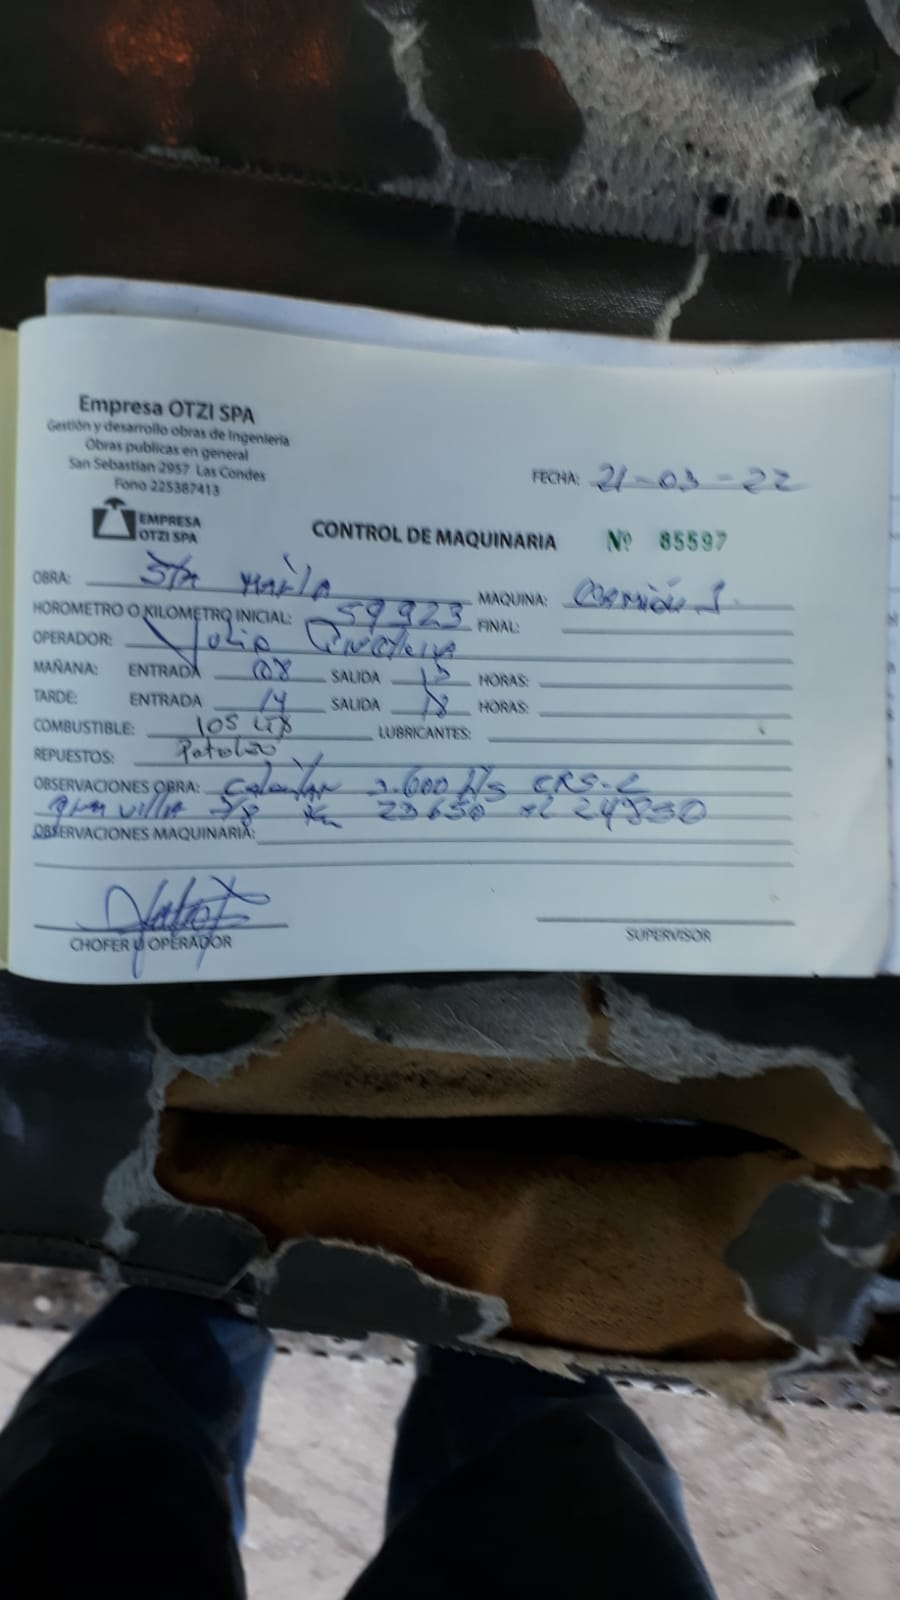 Empresa OTZI SPA
Gestión y desarrollo obras de Ingeniería
Obras publicas en general
San Sebastian 2957 Las Condes
Fono 225387413
FECHA: 21-03-22
EMPRESA
OTZI SPA
CONTROL DE MAQUINARIA Nº 85597
OBRA: Sta María MAQUINA: Camión
HOROMETRO O KILOMETRO INICIAL: 59923 FINAL:
OPERADOR: Julio
MAÑANA: ENTRADA 08 SALIDA 13 HORAS:
TARDE: ENTRADA 14 SALIDA 18 HORAS:
COMBUSTIBLE: 105 LTS LUBRICANTES:
REPUESTOS: Petoleo
OBSERVACIONES OBRA: Calentar CRS-2
gravilla 3/8 Km 23650 al 24850
OBSERVACIONES MAQUINARIA:
CHOFER U OPERADOR
SUPERVISOR